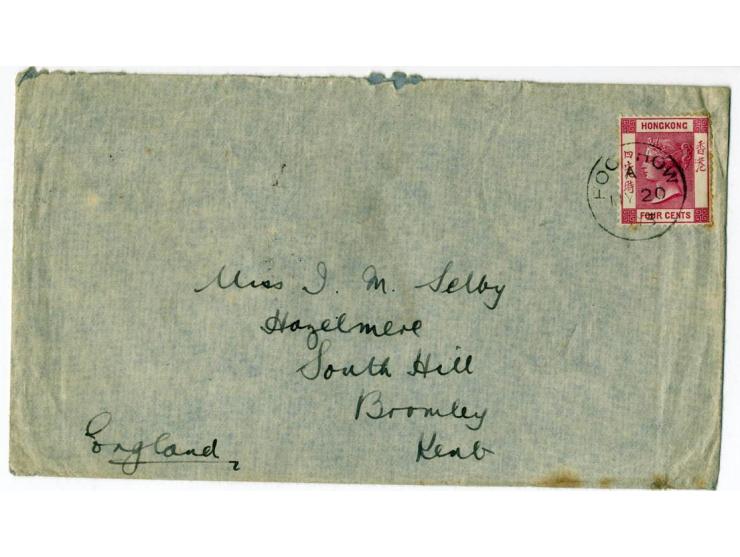 HONGKONG
香港
FOOCHOW
A
MY 20
FOUR CENTS
Miss I. M. Selby
Hazelmere
South Hill
Bromley
Kent
England